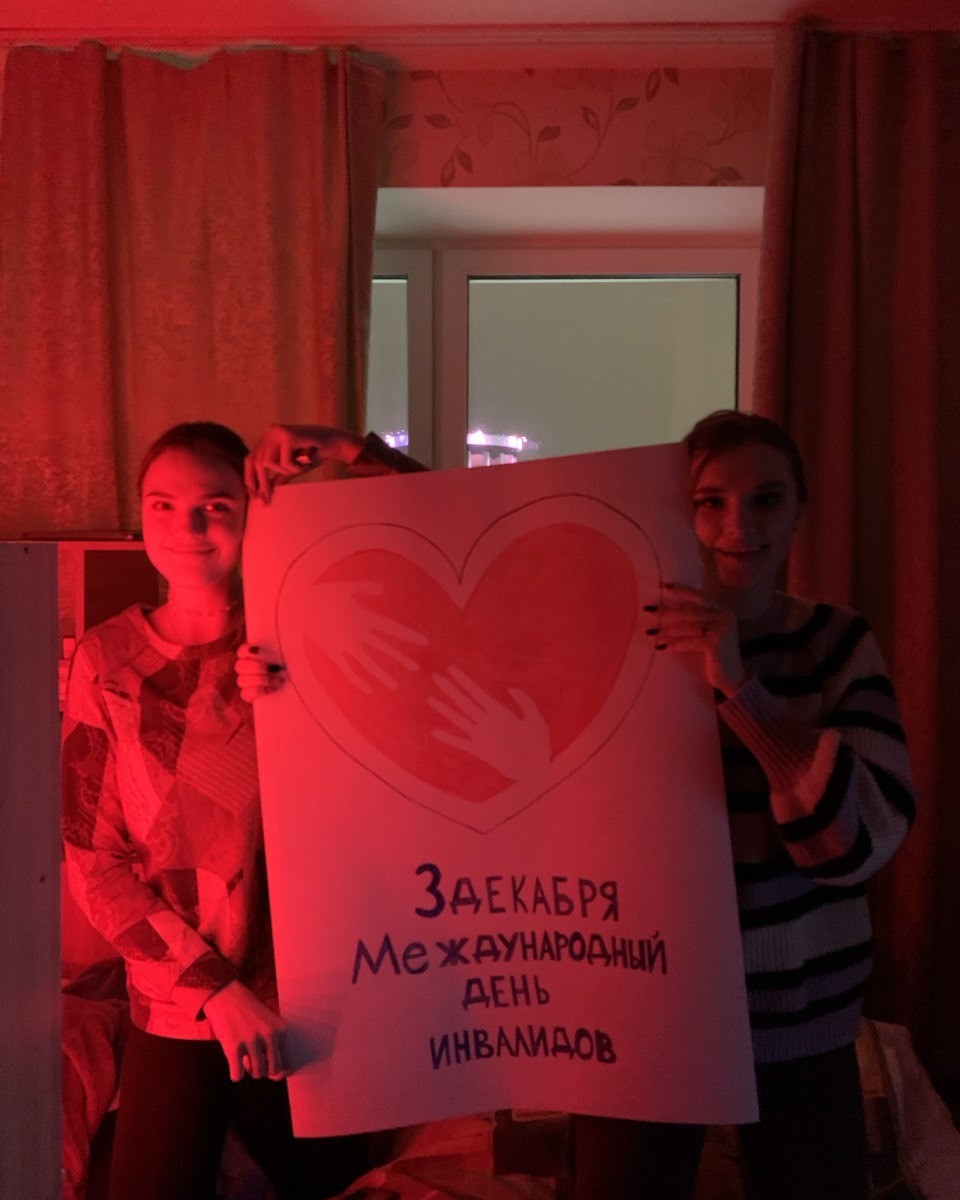 3 ДЕКАБРЯ
МеЖДУНАРОДНЫЙ
ДЕНЬ
ИНВАЛИДОВ